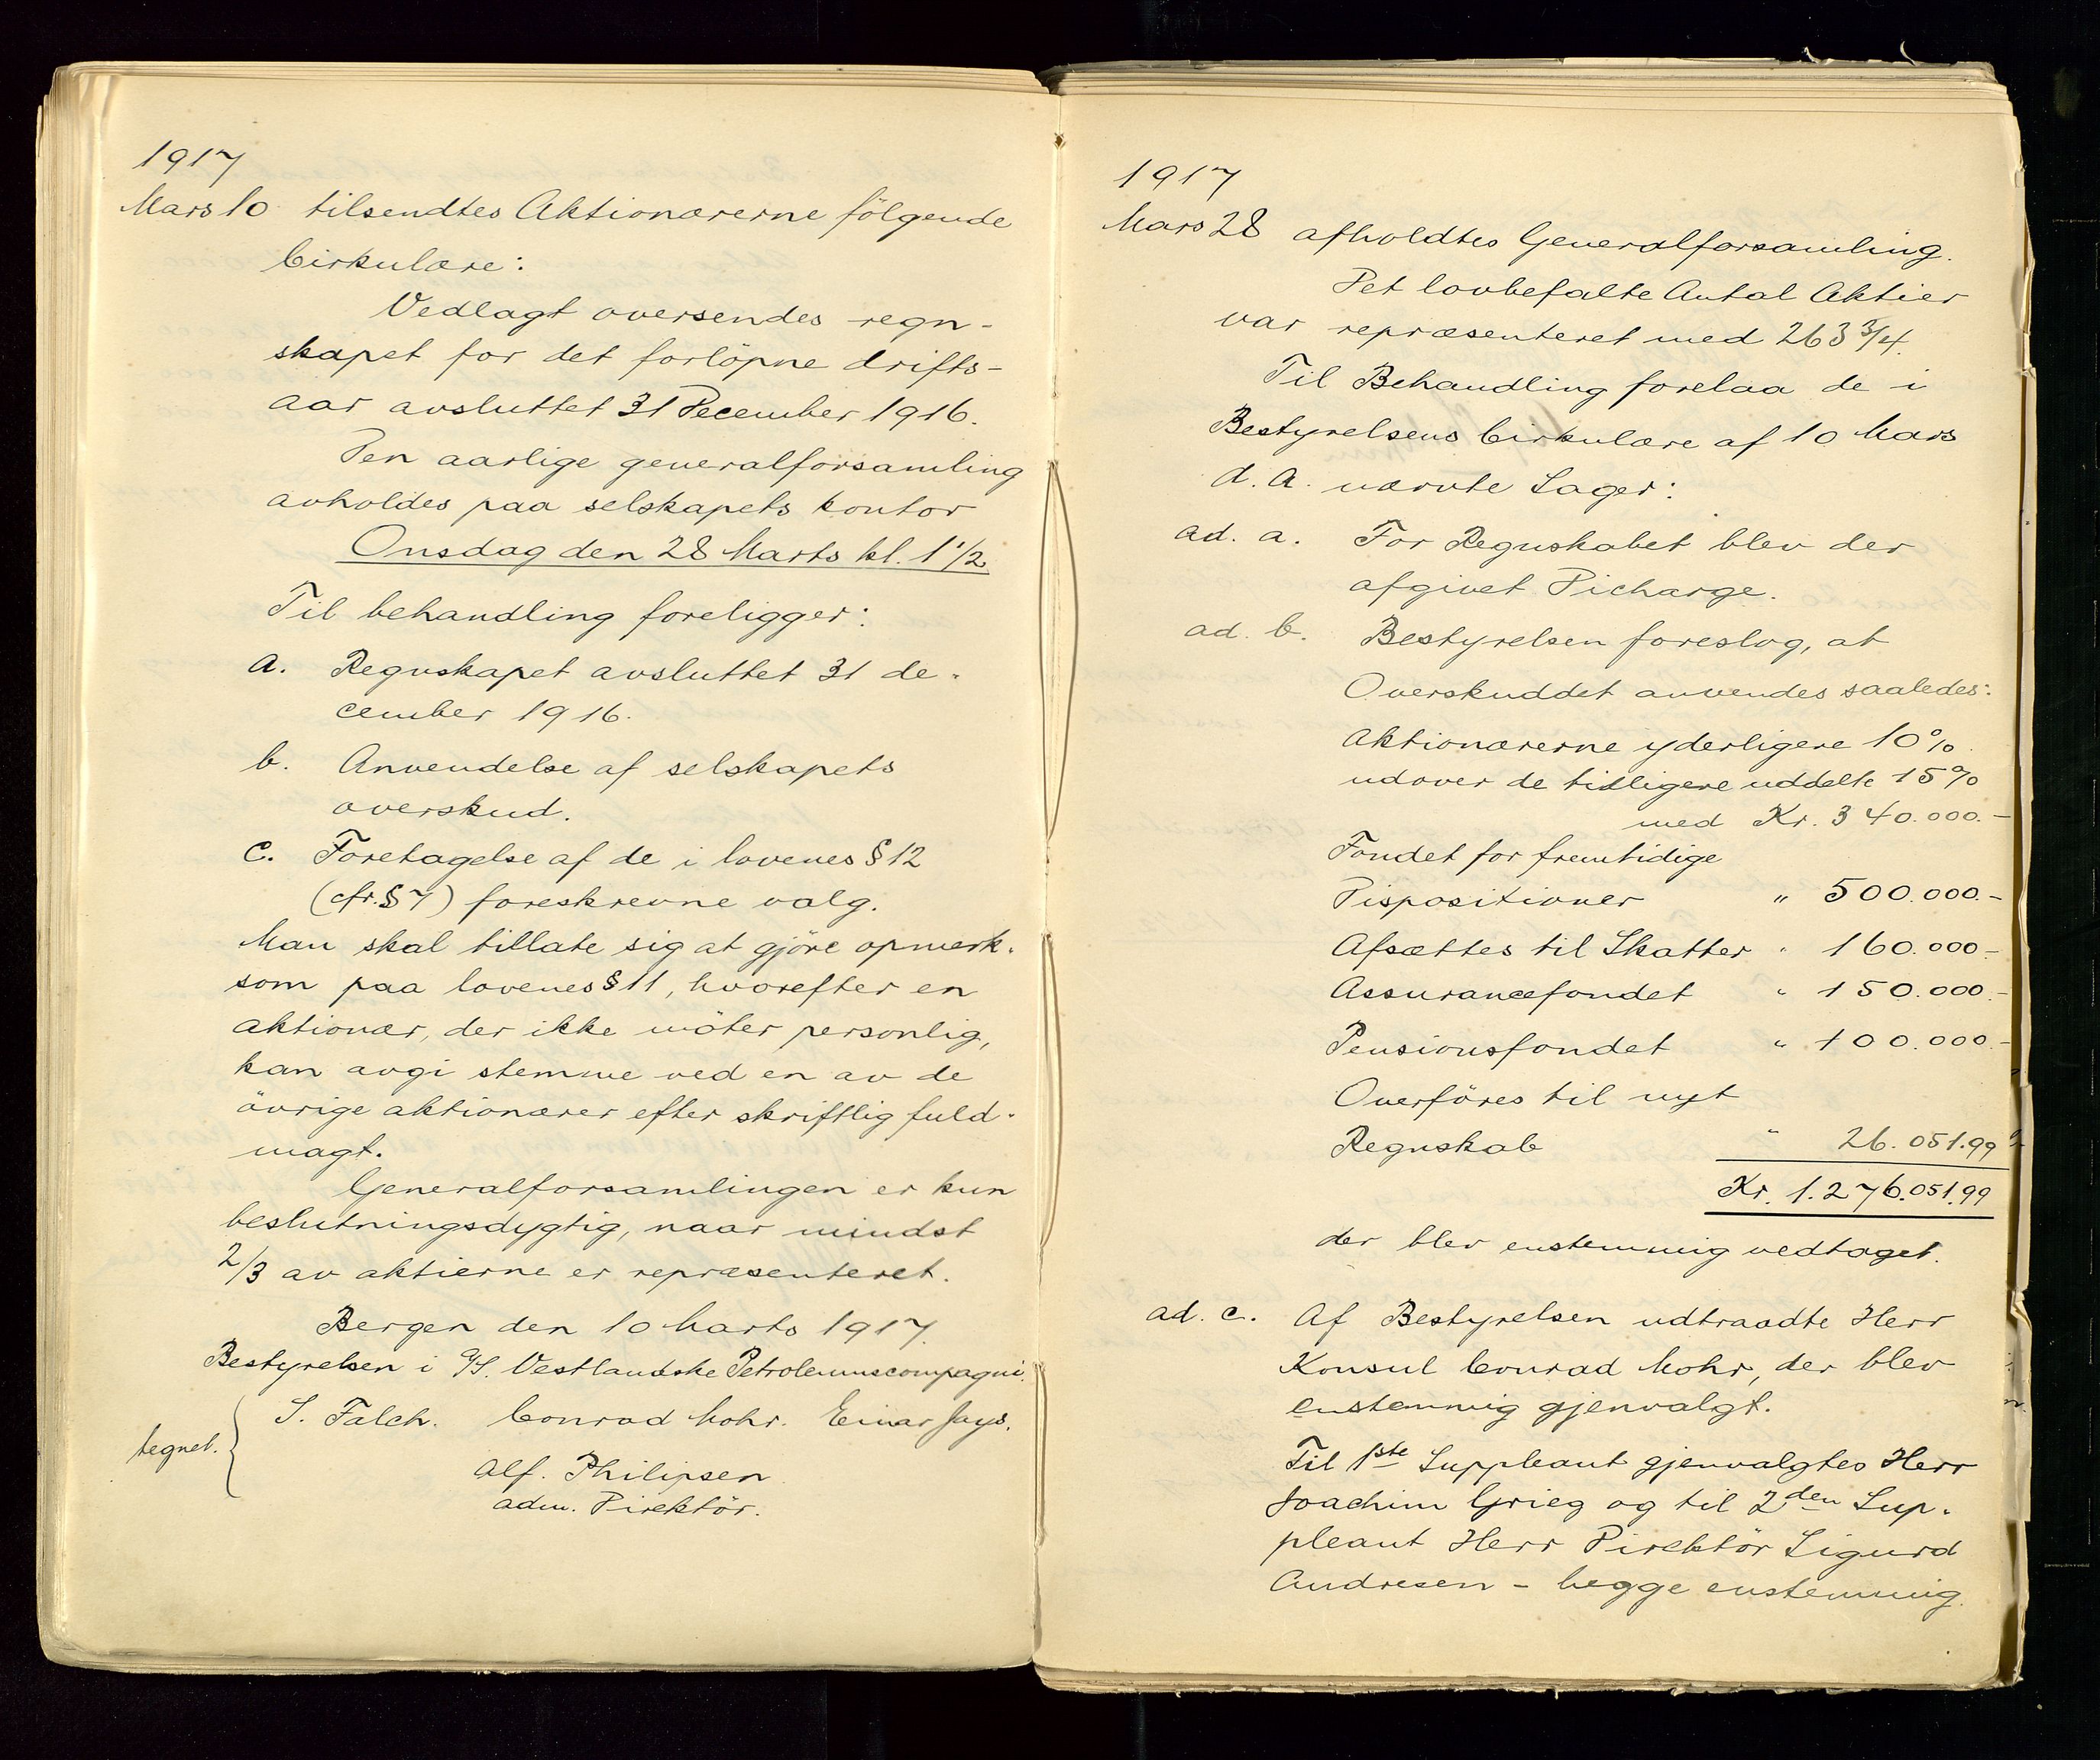 1917
Mars 10 tilsendtes Aktionærerne følgende
Cirkulære:
Vedlagt oversendes regn-
skapet for det forløpne drifts-
aar avsluttet 31 December 1916.
Den aarlige generalforsamling
avholdes paa selskapets kontor
Onsdag den 28 Marts kl. 1 1/2.
Til behandling foreligger:
a. Regnskapet avsluttet 31 de-
cember 1916.
b. Anvendelse af selskapets
overskud.
c. Foretagelse af de i lovenes § 12
(cfr. § 7) foreskrevne valg.
Man skal tillate sig at gjöre opmerk-
som paa lovenes § 11, hvorefter en
aktionær, der ikke möter personlig,
kan avgi stemme ved en av de
övrige aktionærer efter skriftlig fuld-
magt.
Generalforsamlingen er kun
beslutningsdygtig, naar mindst
2/3 av aktierne er repræsenteret.
Bergen den 10 Marts 1917.
Bestyrelsen i A/S. Vestlandske Petroleumscompagni.
tegnet. { S. Falch. Conrad Mohr. Einar Jays.
Alf. Philipsen
adm. Direktör.
1917
Mars 28 afholdtes Generalforsamling.
Det lovbefalte Antal Aktier
var repræsenteret med 263 3/4.
Til Behandling forelaa de i
Bestyrelsens Cirkulære af 10 Mars
d. A. nævnte Sager:
ad. a. For Regnskabet blev der
afgivet Dicharge.
ad. b. Bestyrelsen foreslog, at
Overskuddet anvendes saaledes:
Aktionærerne yderligere 10%
udover de tidligere uddelte 15%
med Kr. 340.000.-
Fondet for fremtidige
Dispositioner " 500.000.-
Afsættes til Skatter " 160.000.-
Assurancefondet " 150.000.-
Pensionsfondet " 100.000.-
Overföres til nyt
Regnskab " 26.051.99
Kr. 1.276.051.99
der blev enstemmig vedtaget.
ad. c. Af Bestyrelsen udtraadte Herr
Konsul Conrad Mohr, der blev
enstemmig gjenvalgt.
Til 1ste Suppleant gjenvalgtes Herr
Joachim Grieg og til 2den Sup-
pleant Herr Direktör Sigurd
Andresen - begge enstemmig.